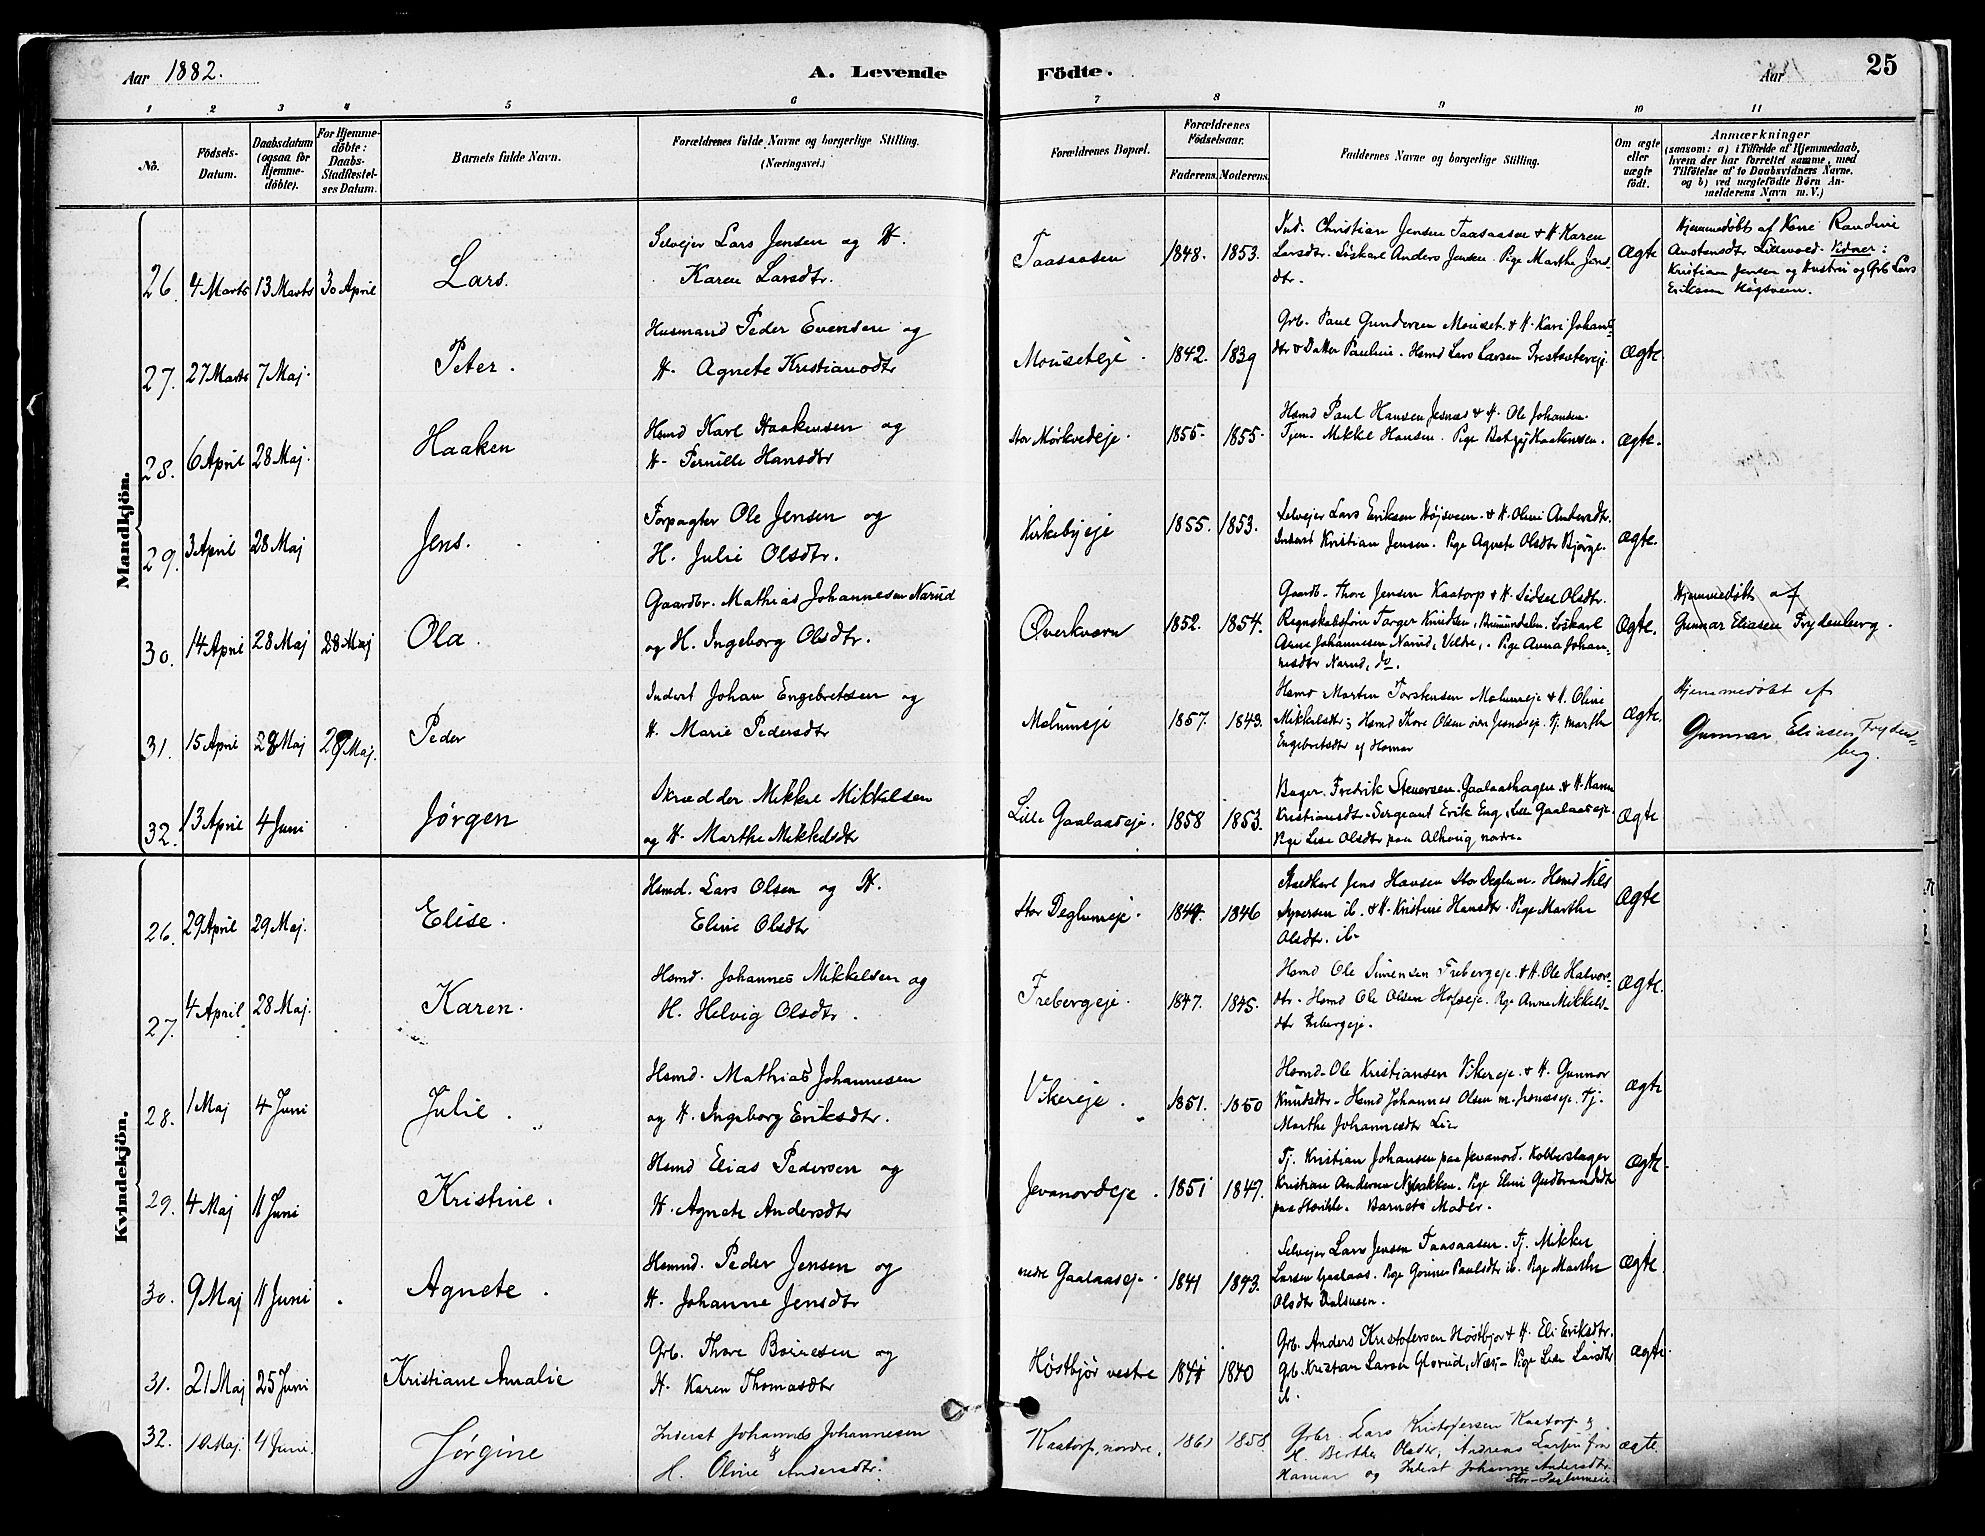 Aar 1882.
A. Levende Födte.
Aar
25
1 2 3 4 5 6 7 8 9 10 11
No.
Födsels-
Datum.
Daabsdatum
(ogsaa for
Hjemme-
döbte).
For Hjemme-
döbte:
Daabs-
Stadfæstel-
ses Datum.
Barnets fulde Navn.
Forældrenes fulde Navne og borgerlige Stilling.
(Næringsvei.)
Forældrenes Bopæl.
Forældrenes
Födselsaar.
Faderens. Moderens.
Faddernes Navne og borgerlige Stilling.
Om ægte
eller
uægte
födt.
Anmærkninger
(saasom: a) i Tilfælde af Hjemmedaab,
hvem der har forrettet samme, med
Tilföielse af to Daabsvidners Navne,
og b) ved uægtefödte Børn An-
melderens Navn m. V.)
Mandkjön.
26. 4 Marts 13 Marts 30 April Lars.
Selvejer Lars Jensen og H.
Karen Larsdtr.
Taasaasen 1848. 1853.
Ind. Christian Jensen Taasaasen & H. Karen
Larsdtr. Löskarl Anders Jensen. Pige Marthe Jens-
dtr.
Ægte
Hjemmedøbt af Kone Randine
Vidner:
Kristian Jensen og Hustru og Grb Lars
Eriksen Høgsveen.
27. 27 Marts 7 Maj. Peter.
Husmand Peder Evensen og
H. Agnete Kristiansdtr
Mouseteje. 1842. 1839
Grb. Paul Gundersen Mouset. & H. Kari Johans-
dtr & Datter Pauline. Hsmd Lars Larsen
Ægte
28. 6 April 28 Maj. Haaken
Hsmd Karl Haakensen og
H. Pernille Hansdtr
Stor Mörkvedeje. 1855. 1855.
Hsmd Paul Hansen Jesnæs & H. Ole Johansen.
Tjen. Mikkel Hansen. Pige Haakensen.
Ægte.
29. 3 April 28 Maj Jens.
Forpagter Ole Jensen og
H. Julie Olsdtr.
Kirkebyeje 1855. 1853.
Selvejer Lars Eriksen Højsveen. & H. Oline Andersdtr.
Inderst Kristian Jensen. Pige Agnete Olsdtr Bjørge.
Ægte.
30. 14 April 28 Maj 28 Maj Ola.
Gaardbr. Mathias Johannesen Narud
og H. Ingeborg Olsdtr.
Øverkvern 1852. 1854.
Gaardb. Thore Jensen Kaatorp & H. Sidsel Olsdtr.
Regnskabsfører Torger Knudsen, Brumundalen. Löskarl
Arne Johannesen Narud, Veldre,. Pige Anna Johan-
nesdtr Narud, do.
Ægte.
Hjemmedøbt af
Gunnar Eliasen Frydenberg.
31. 15 April 28 Maj 28 Maj. Peder
Inderst Johan Engebretsen og
H. Marie Pedersdtr
Melumeje 1857. 1843.
Hsmd Martin Torstensen Melumeje & H. Oline
Mikkelsdtr; Hsmd Thore Olsen Jesnæseje. Tj. Marthe
Engebretsdtr af Hamar
Ægte.
Hjemmedøbt af
Gunnar Eliasen Fryden-
berg.
32. 13 April 4 Juni Jørgen
Skrædder Mikkel Mikkelsen
og H. Marthe Mikkelsdtr
Lille Gaalaaseje. 1858 1853.
Bager Fredrik Stenersen Gaalaashagen & H. Karen
Kristiansdtr. Sergeant Erik Eng, Lille Gaalaaseje.
Pige Lise Olsdtr paa nordre.
Ægte
Kvindekjön.
26. 29 April 29 Maj. Elise.
Hsmd. Lars Olsen og H.
Eline Olsdtr
Stor Deglumeje. 1849. 1846
Jens Hansen Stor Deglum. Hsmd Nils
Syversen ib. & H. Kristine Hansdtr. Pige Marthe
Olsdtr. ib.
Ægte
27. 4 April 28 Maj. Karen.
Hsmd. Johannes Mikkelsen og
H. Helvig Olsdtr.
Frebergeje. 1847. 1845.
Hsmd Ole Simensen Frebergeje. & H. Ole Halvors-
dtr. Hsmd Ole Olsen Hofseje. Pige Anne Mikkels-
dtr Frebergeje.
Ægte.
28. 1 Maj 4 Juni Julie.
Hsmd. Mathias Johannesen
og H. Ingeborg Eriksdtr.
Vikereje. 1851. 1850
Hsmd. Ole Kristiansen Vikereje. & H. Gunnor
Knudsdtr. Hsmd Johannes Olsen Tj.
Marthe Johannesdtr Lier
Ægte
29. 4 Maj 11 Juni Kristine.
Hsmd Elias Pedersen og
H. Agnete Andersdtr
Jevanordeje. 1851 1847.
Tj. Kristian Johansen paa Jevanord. Kobberslager
Kristian Andersen Pige Eline Gudbrandsdtr
paa Barnets Moder.
Ægte.
30. 9 Maj 11 Juni Agnete.
Hsmd. Peder Jensen og
H. Johanne Jensdtr
nedre Gaalaaseje. 1841 1843.
Selvejer Lars Jensen Taasaasen. Tj. Mikkel
Larsen Gaalaas. Pige Paulsdtr ib. Pige Marthe
Olsdtr Dalsveen.
Ægte.
31. 21 Maj 25 Juni Kristiane Amalie
Grb. Thore Børresen og
H. Karen Thomasdtr
Høstbjör vestre 1841 1840
Grb. Anders Kristofersen Høstbjør & H. Eli Eriksdtr.
Grb. Kristian Larsen Glorud, Næs. Pige Lise Larsdtr
ib.
Ægte.
32. 10 Maj. 4 Juni. Jørgine
Inderst Johannes Johannesen
&
H. Oline Andersdtr.
Kaatorp, nordre. 1861 1858.
Grbr. Lars Kristofersen Kaatorp &
H. Berthe Olsdtr, Andreas Larsen fra
Hamar og Inderst Johanne Andersdtr.
Stor-Deglumeie.
ægte